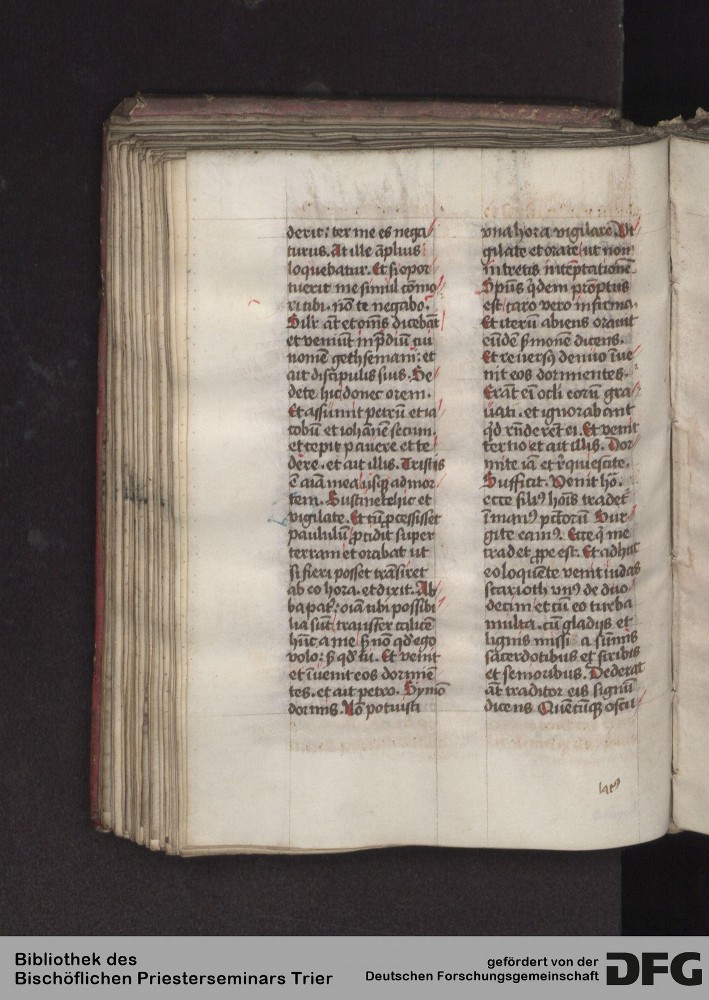 derit: ter me es nega
turus. At ille āplius
loquebatur. Et si opor
tuerit me simul cōmo
ri tibi. nō te negabo.
Silr āt et om̄s dicebāt
et veniūt in p̄diū cui
nomē gethsemani: et
ait discipulis suis. Se
dete hic donec orem.
Et assumit petrū et ia
cobū et iohānē secum.
et cepit pauere et te
dere. et ait illis. Tristis
ē aīa mea usqꝫ ad mor
tem. Sustinete hic et
vigilate. Et cū ꝓcessisset
paululū ꝓcidit super
terram et orabat ut
si fieri posset trāsiret
ab eo hora. et dixit. Ab
ba pat̄: oīa tibi possibi
lia sūt transfer calicē
hūc a me sꝫ nō qd̄ ego
volo: sꝫ qd̄ tu. Et venit
et īuenit eos dormiē
tes. et ait petro. Symō
dormis. Nō potuisti
vna hora vigilare. Vi
gilate et orate ut non
intretis in tēptationē
Spūs qͥdem prōptus
est caro vero infirma.
Et iterū abiens orauit
eūdē ẜmonē dicens.
Et reuersꝰ denuo īue
nit eos dormientes.
Erāt eī oc̄li eorū gra
uati. et ignorabant
qͥd rn̄derēt ei. Et venit
tertio et ait illis. Dor
mite iā et reqͥescite.
Sufficit. Venit ho.
ecce filiꝰ hoīs tradet̄
ī manꝰ pc̄torū Sur
gite eamꝰ. Ecce qͥ me
tradet ꝓpe est. Et adhuc
eo loquēte venit iudas
scarioth vnꝰ de duo
decim et cū eo turba
multa. cū gladijs et
lignis missi a sūmis
sacerdotibus et scribis
et senioribus. Dederat
āt traditor eis signū
dicens Quēcūqꝫ oscu
latꝰ
Bibliothek des
Bischöflichen Priesterseminars Trier
gefördert von der
Deutschen Forschungsgemeinschaft
DFG